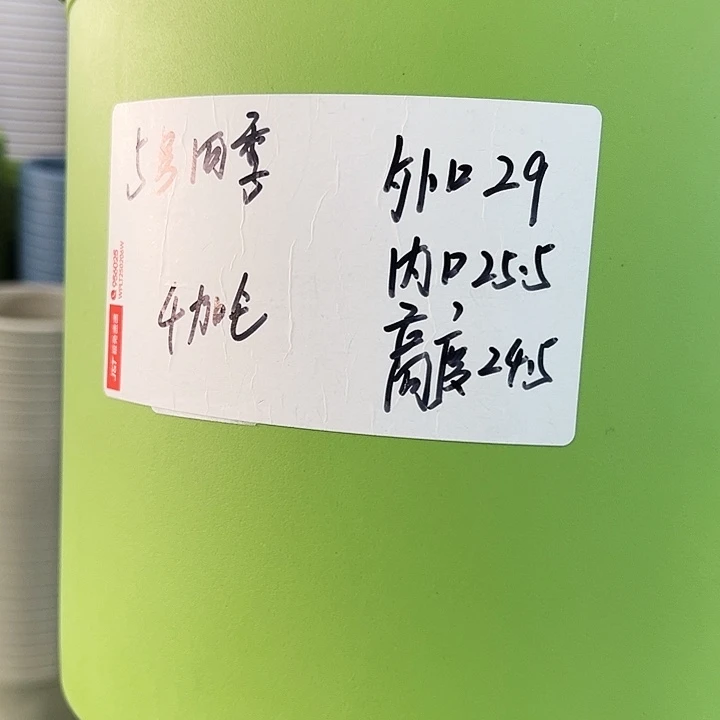 5号四季
4加仑
外口29
内口25.5
高度24.5